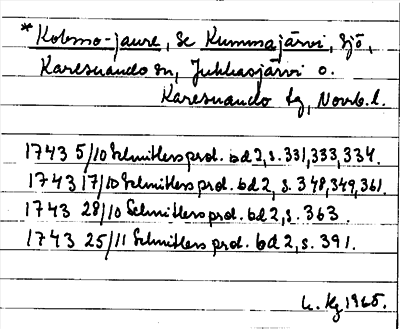 *Kobmo-jaure, se Kummajärvi, sjö,
Karesuando sn, Jukkasjärvi o.
Karesuando tg, Norrb.l.
1743 5/10 Schnitlers prot. bd 2, s. 331, 333, 334.
1743 17/10 Schnitlers prot. bd 2, s. 348, 349, 361.
1743 28/10 Schnitlers prot. bd 2, s. 363.
1743 25/11 Schnitlers prot. bd 2, s. 391.
1965.